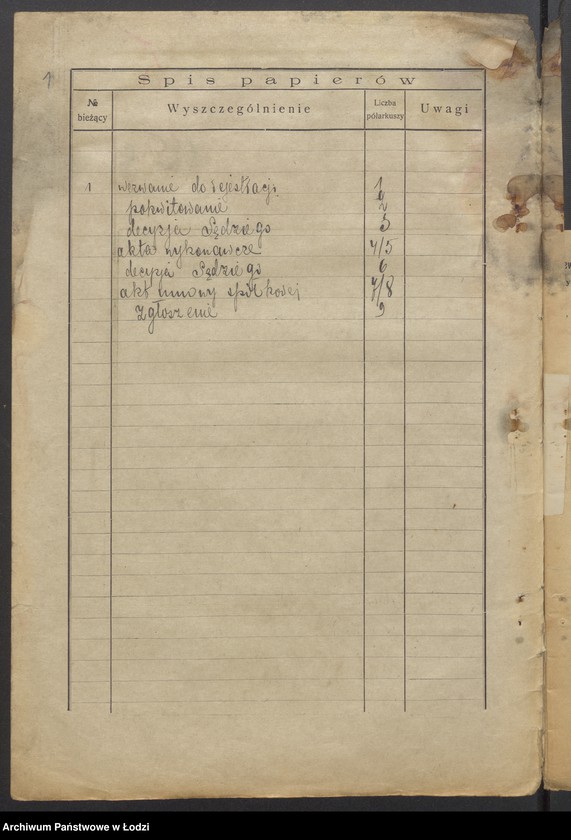 1
Spis papierów
№ bieżący Wyszczególnienie Liczba półarkuszy Uwagi
1 wezwanie do rejestracji 1
pokwitowanie 2
decyzja Sędziego 3
akta wykonawcze 4/5
decyzja Sędziego 6
akt umowy spółkowej 7/8
zgłoszenie 9
Archiwum Państwowe w Łodzi